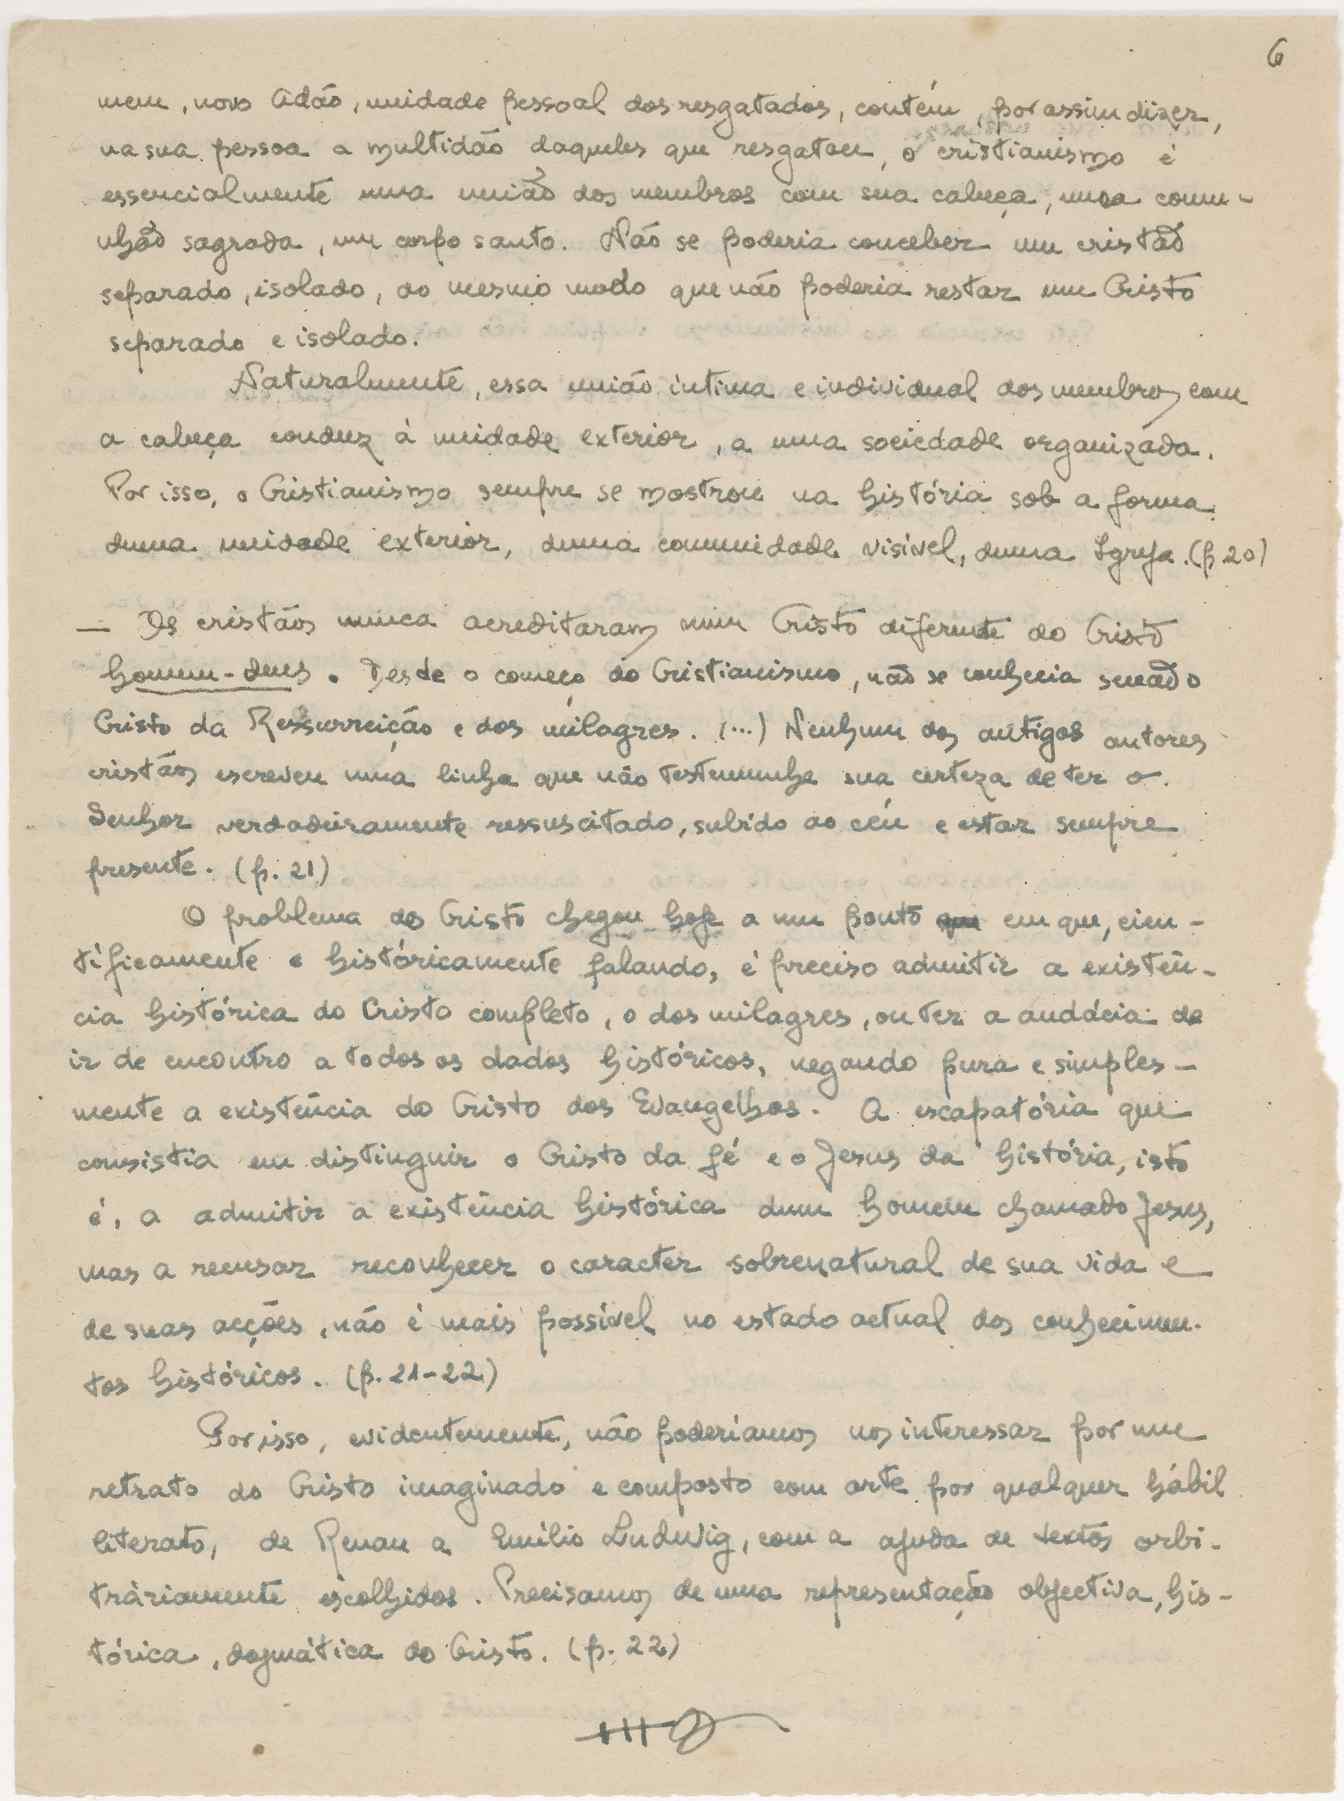 6
mem, novo Adão, unidade pessoal dos resgatados, contém, por assim dizer,
na sua pessoa a multidão daqueles que resgatou, o cristianismo é
essencialmente uma união dos membros com sua cabeça, uma comu-
nhão sagrada, um corpo santo. Não se poderia conceber um cristão
separado, isolado, do mesmo modo que não poderia restar um Cristo
separado e isolado.
Naturalmente, essa união íntima e individual dos membros com
a cabeça conduz à unidade exterior, a uma sociedade organizada.
Por isso, o Cristianismo sempre se mostrou na história sob a forma
duma unidade exterior, duma comunidade visível, duma Igreja. (p. 20)
— Os cristãos nunca acreditaram num Cristo diferente do Cristo
homem-deus. Desde o começo do Cristianismo, não se conhecia senão o
Cristo da Ressurreição e dos milagres. (...) Nenhum dos antigos autores
cristãos escreveu uma linha que não testemunhe sua certeza de ter o
Senhor verdadeiramente ressuscitado, subido ao céu e estar sempre
presente. (p. 21)
O problema do Cristo chegou hoje a um ponto que em que, cien-
tíficamente e históricamente falando, é preciso admitir a existên-
cia histórica do Cristo completo, o dos milagres, ou ter a audácia de
ir de encontro a todos os dados históricos, negando pura e simples-
mente a existência do Cristo dos Evangelhos. A escapatória que
consistia em distinguir o Cristo da fé e o Jesus da história, isto
é, a admitir a existência histórica dum homem chamado Jesus,
mas a recusar reconhecer o caracter sobrenatural de sua vida e
de suas acções, não é mais possível no estado actual dos conhecimen-
tos históricos. (p. 21-22)
Por isso, evidentemente, não poderíamos nos interessar por um
retrato do Cristo imaginado e composto com arte por qualquer hábil
literato, de Renan a Emílio Ludwig, com a ajuda de textos arbi-
tràriamente escolhidos. Precisamos de uma representação objectiva, his-
tórica, dogmática do Cristo. (p. 22)